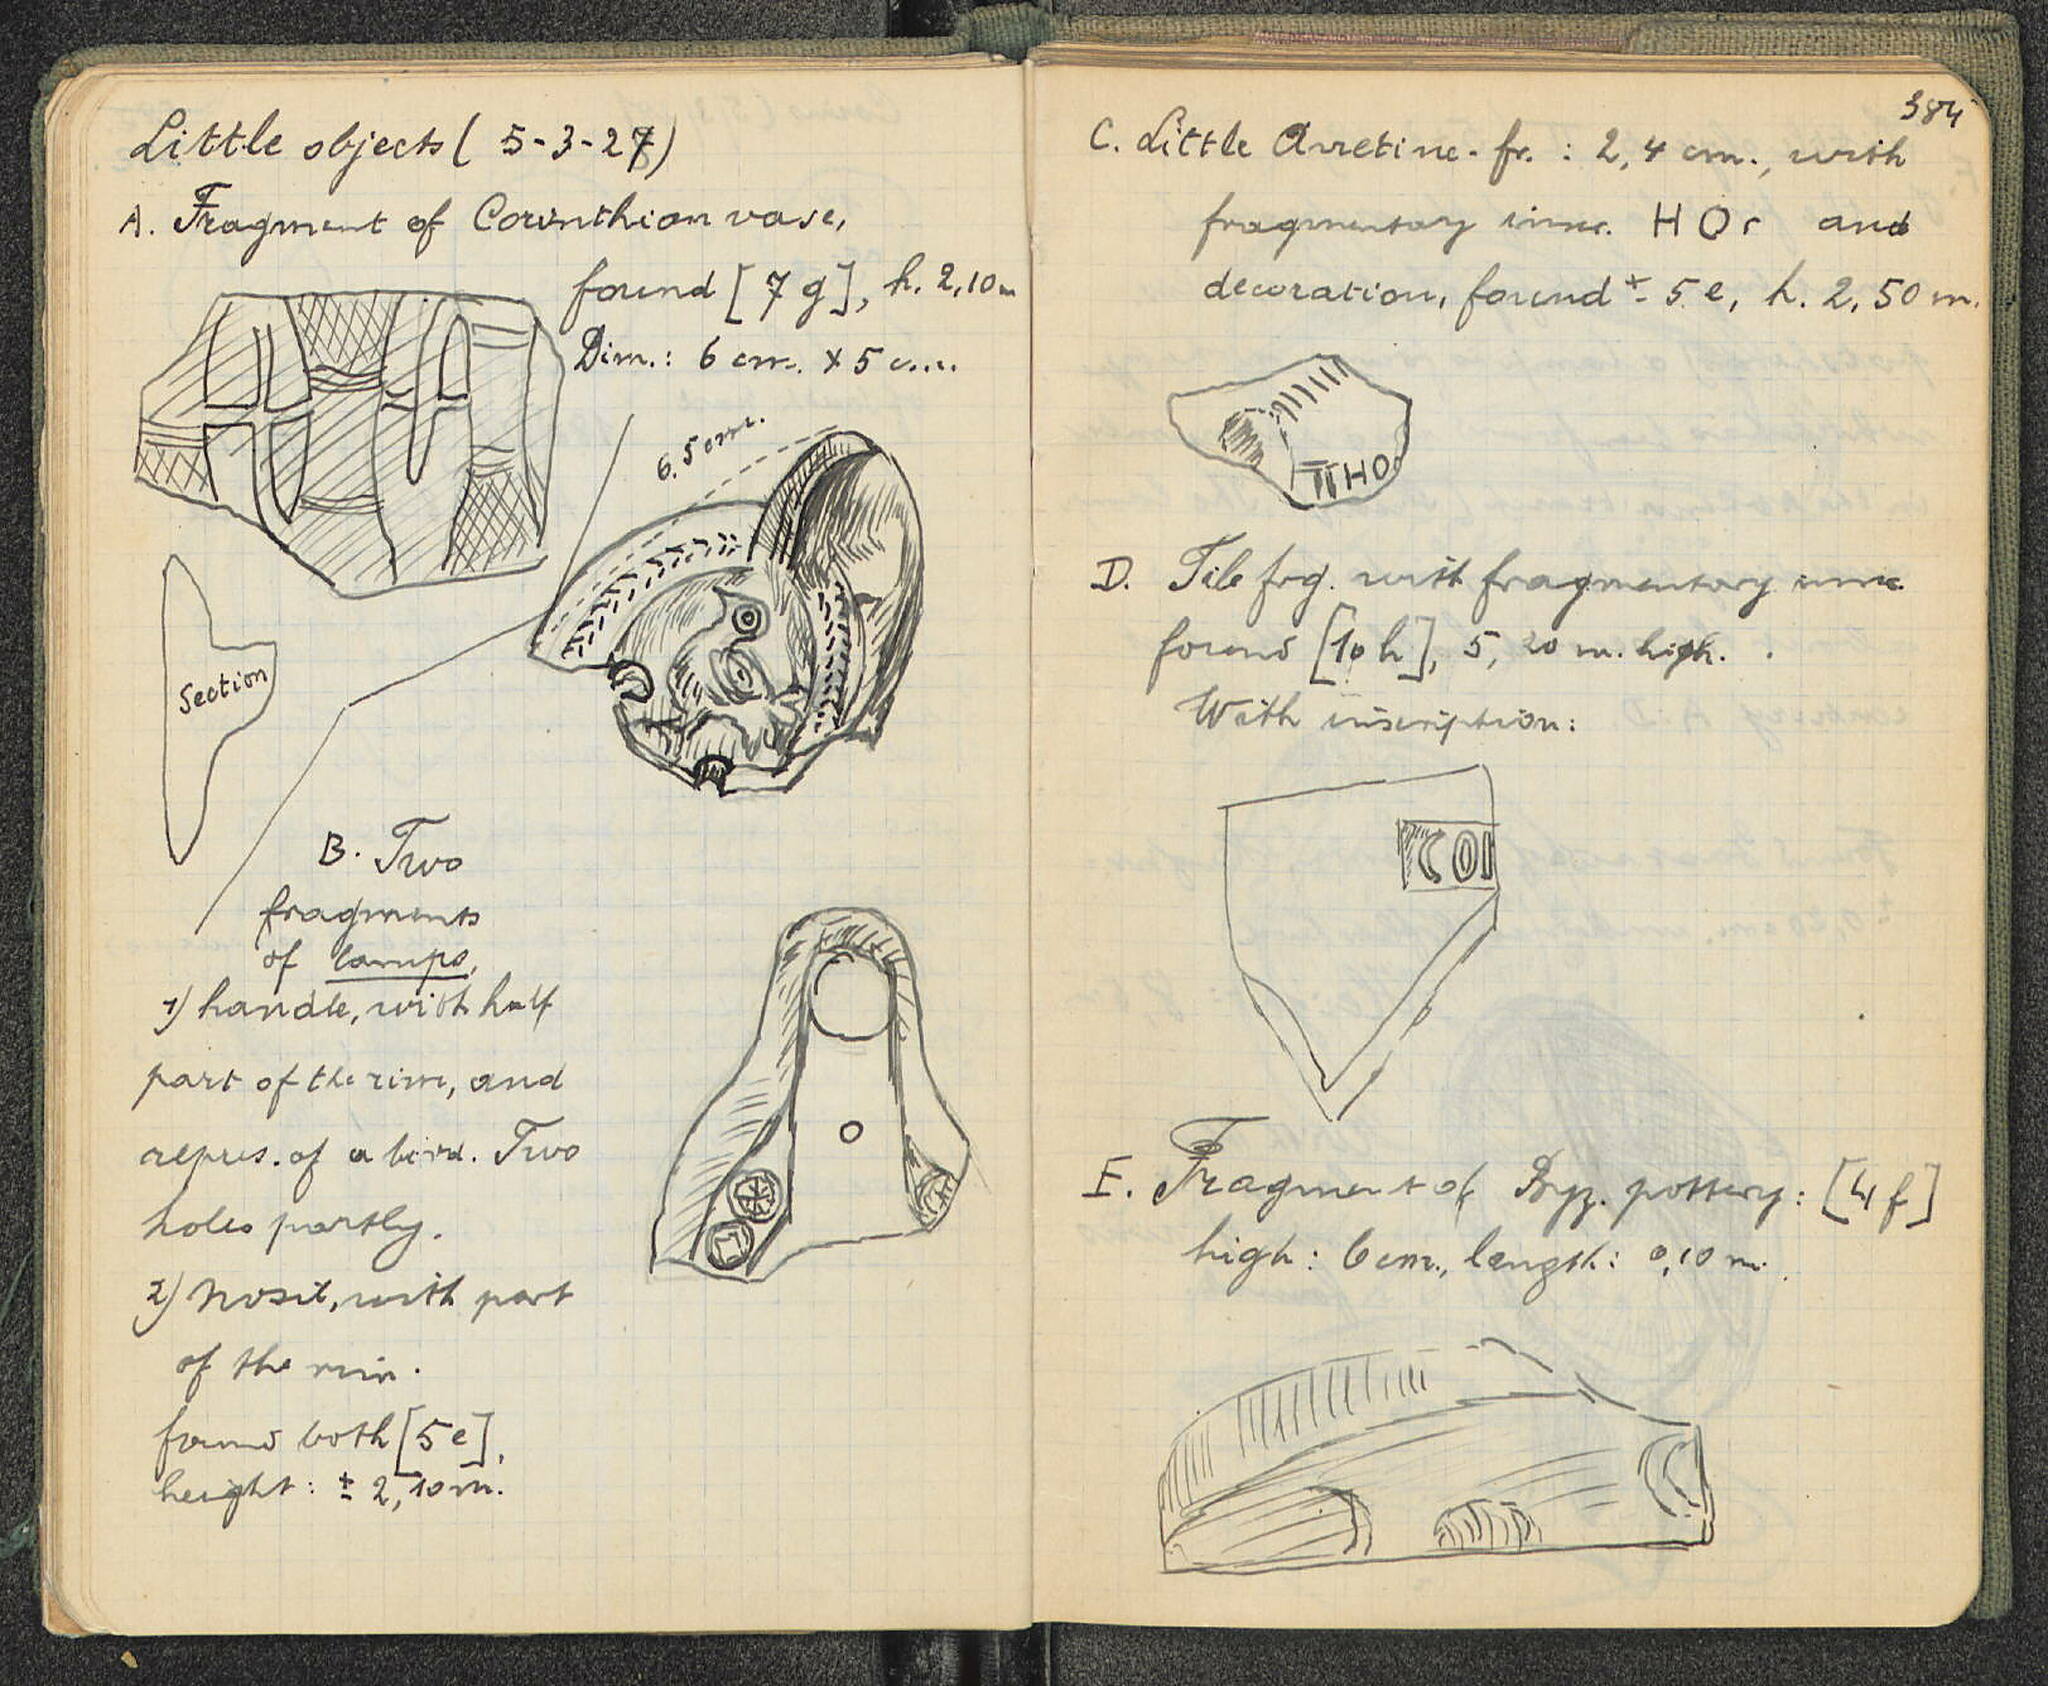 Little objects ( 5-3-27)
A. Fragment of Corinthian vase,
found [7 g], h. 2,10 m
Dim.: 6 cm. x 5 cm.
6.5 cm.
Section
B. Two
fragments
of lamps,
1) handle, with half
part of the rim, and
repres. of a bird. Two
holes partly.
2) Nosit, with part
of the rim.
found both [5 e],
height: ± 2,10 m.
384
C. Little Arretine-fr. : 2,4 cm., with
fragmentary inscr. HOr and
decoration, found ± 5 e, h. 2,50 m.
HO
D. Tile frg. with fragmentary inscr.
found [10 h], 5,20 m. high.
With inscription:
COI
E. Fragment of Byz. pottery: [4 f]
high: 6 cm., length: 0,10 m.